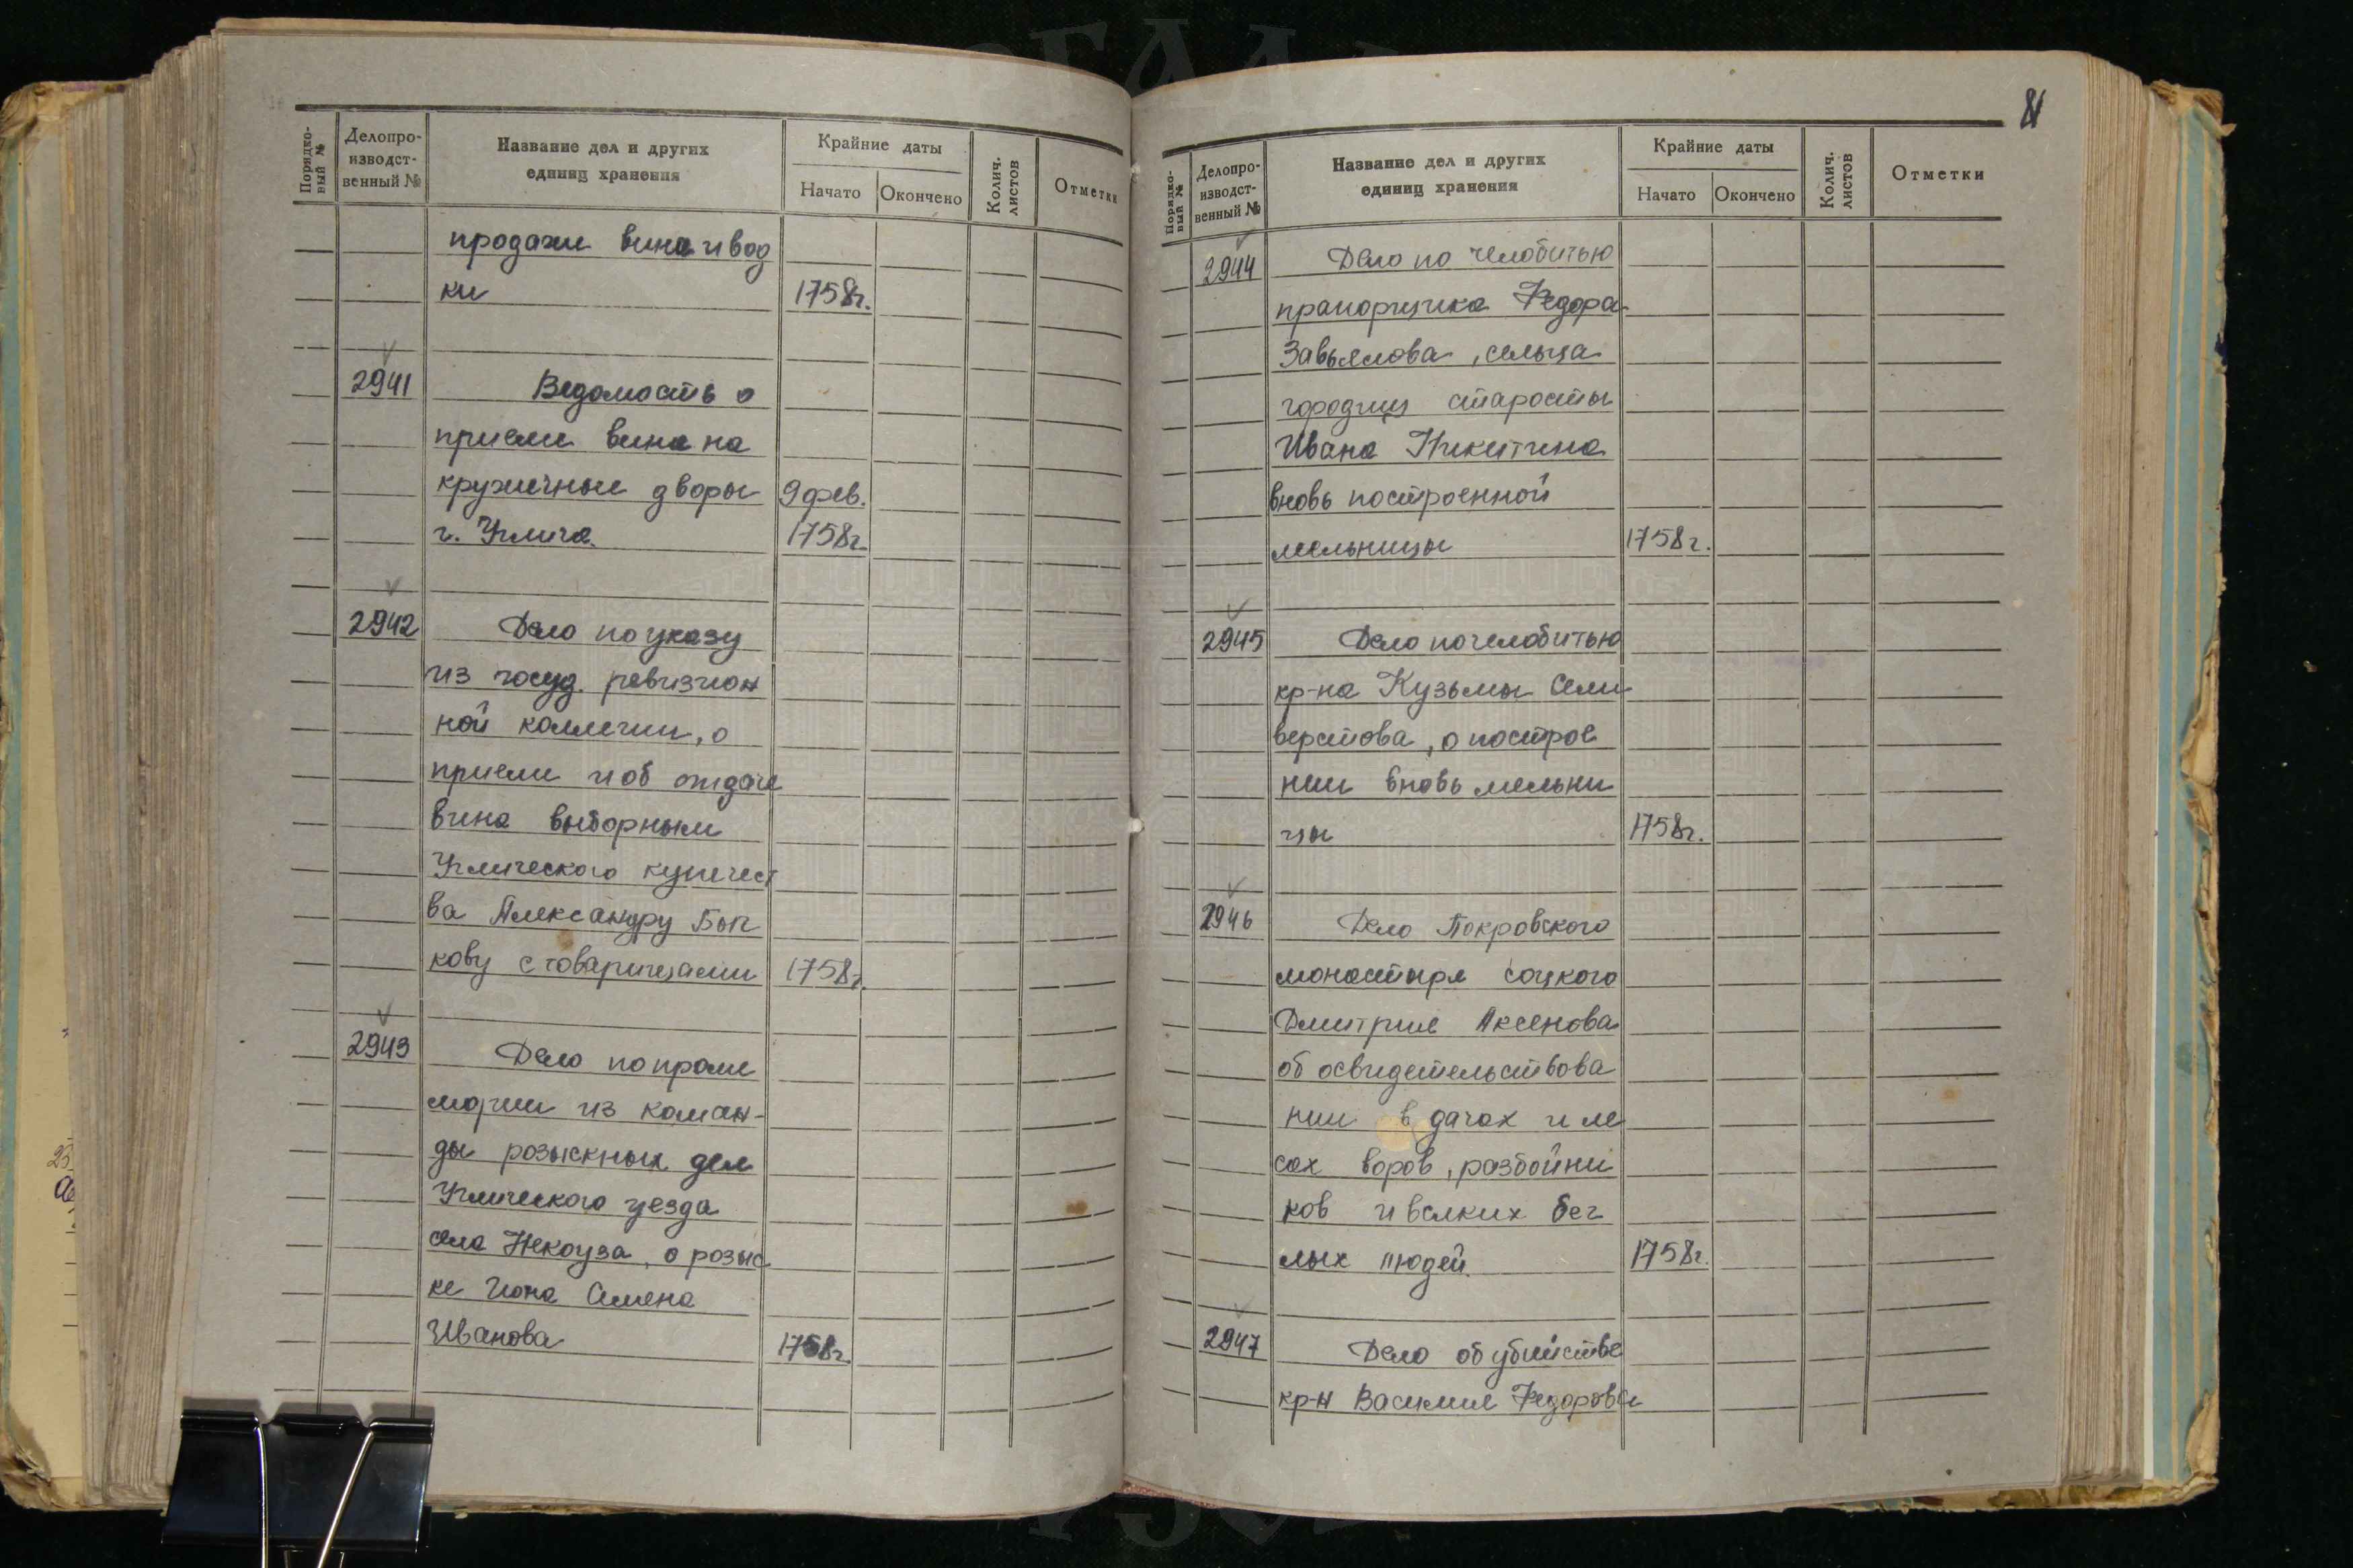 Порядко-
вый №
Делопро-
изводст-
венный №
Название дел и других
единиц хранения
Крайние даты
Начато
Окончено
Колич.
листов
Отметки
продажи вина и вод
ки 1758г.
2941 Ведомость о
приеме вина на
кружечные дворы 9 фев.
г. Углича. 1758г.
2942 Дело по указу
из госуд. ревизион
ной коллегии, о
приеме и об отдаче
вина выборным
Углического купечест
ва Александру Бык
кову с товарищами 1758г.
2943 Дело по проме
мории из коман-
ды розыскных дел
Углического уезда
села Некоуза, о розыс
ке Семена
Иванова 1758г.
81
Порядко-
вый №
Делопро-
изводст-
венный №
Название дел и других
единиц хранения
Крайние даты
Начато
Окончено
Колич.
листов
Отметки
2944 Дело по челобитью
прапорщика Федора
Завьялова, сельца
городищ старосты
Ивана Никитина
вновь построенной
мельницы 1758г.
2945 Дело по челобитью
кр-на Кузьмы Сели
верстова, о построе
нии вновь мельни
цы 1758г.
2946 Дело Покровского
монастыря соцкого
Дмитрия Аксенова
об освидетельствова
нии в дачах и ле
сах воров, разбойни
ков и всяких бег
лых людей. 1758г.
2947 Дело об убийстве
кр-н Василия Федорова